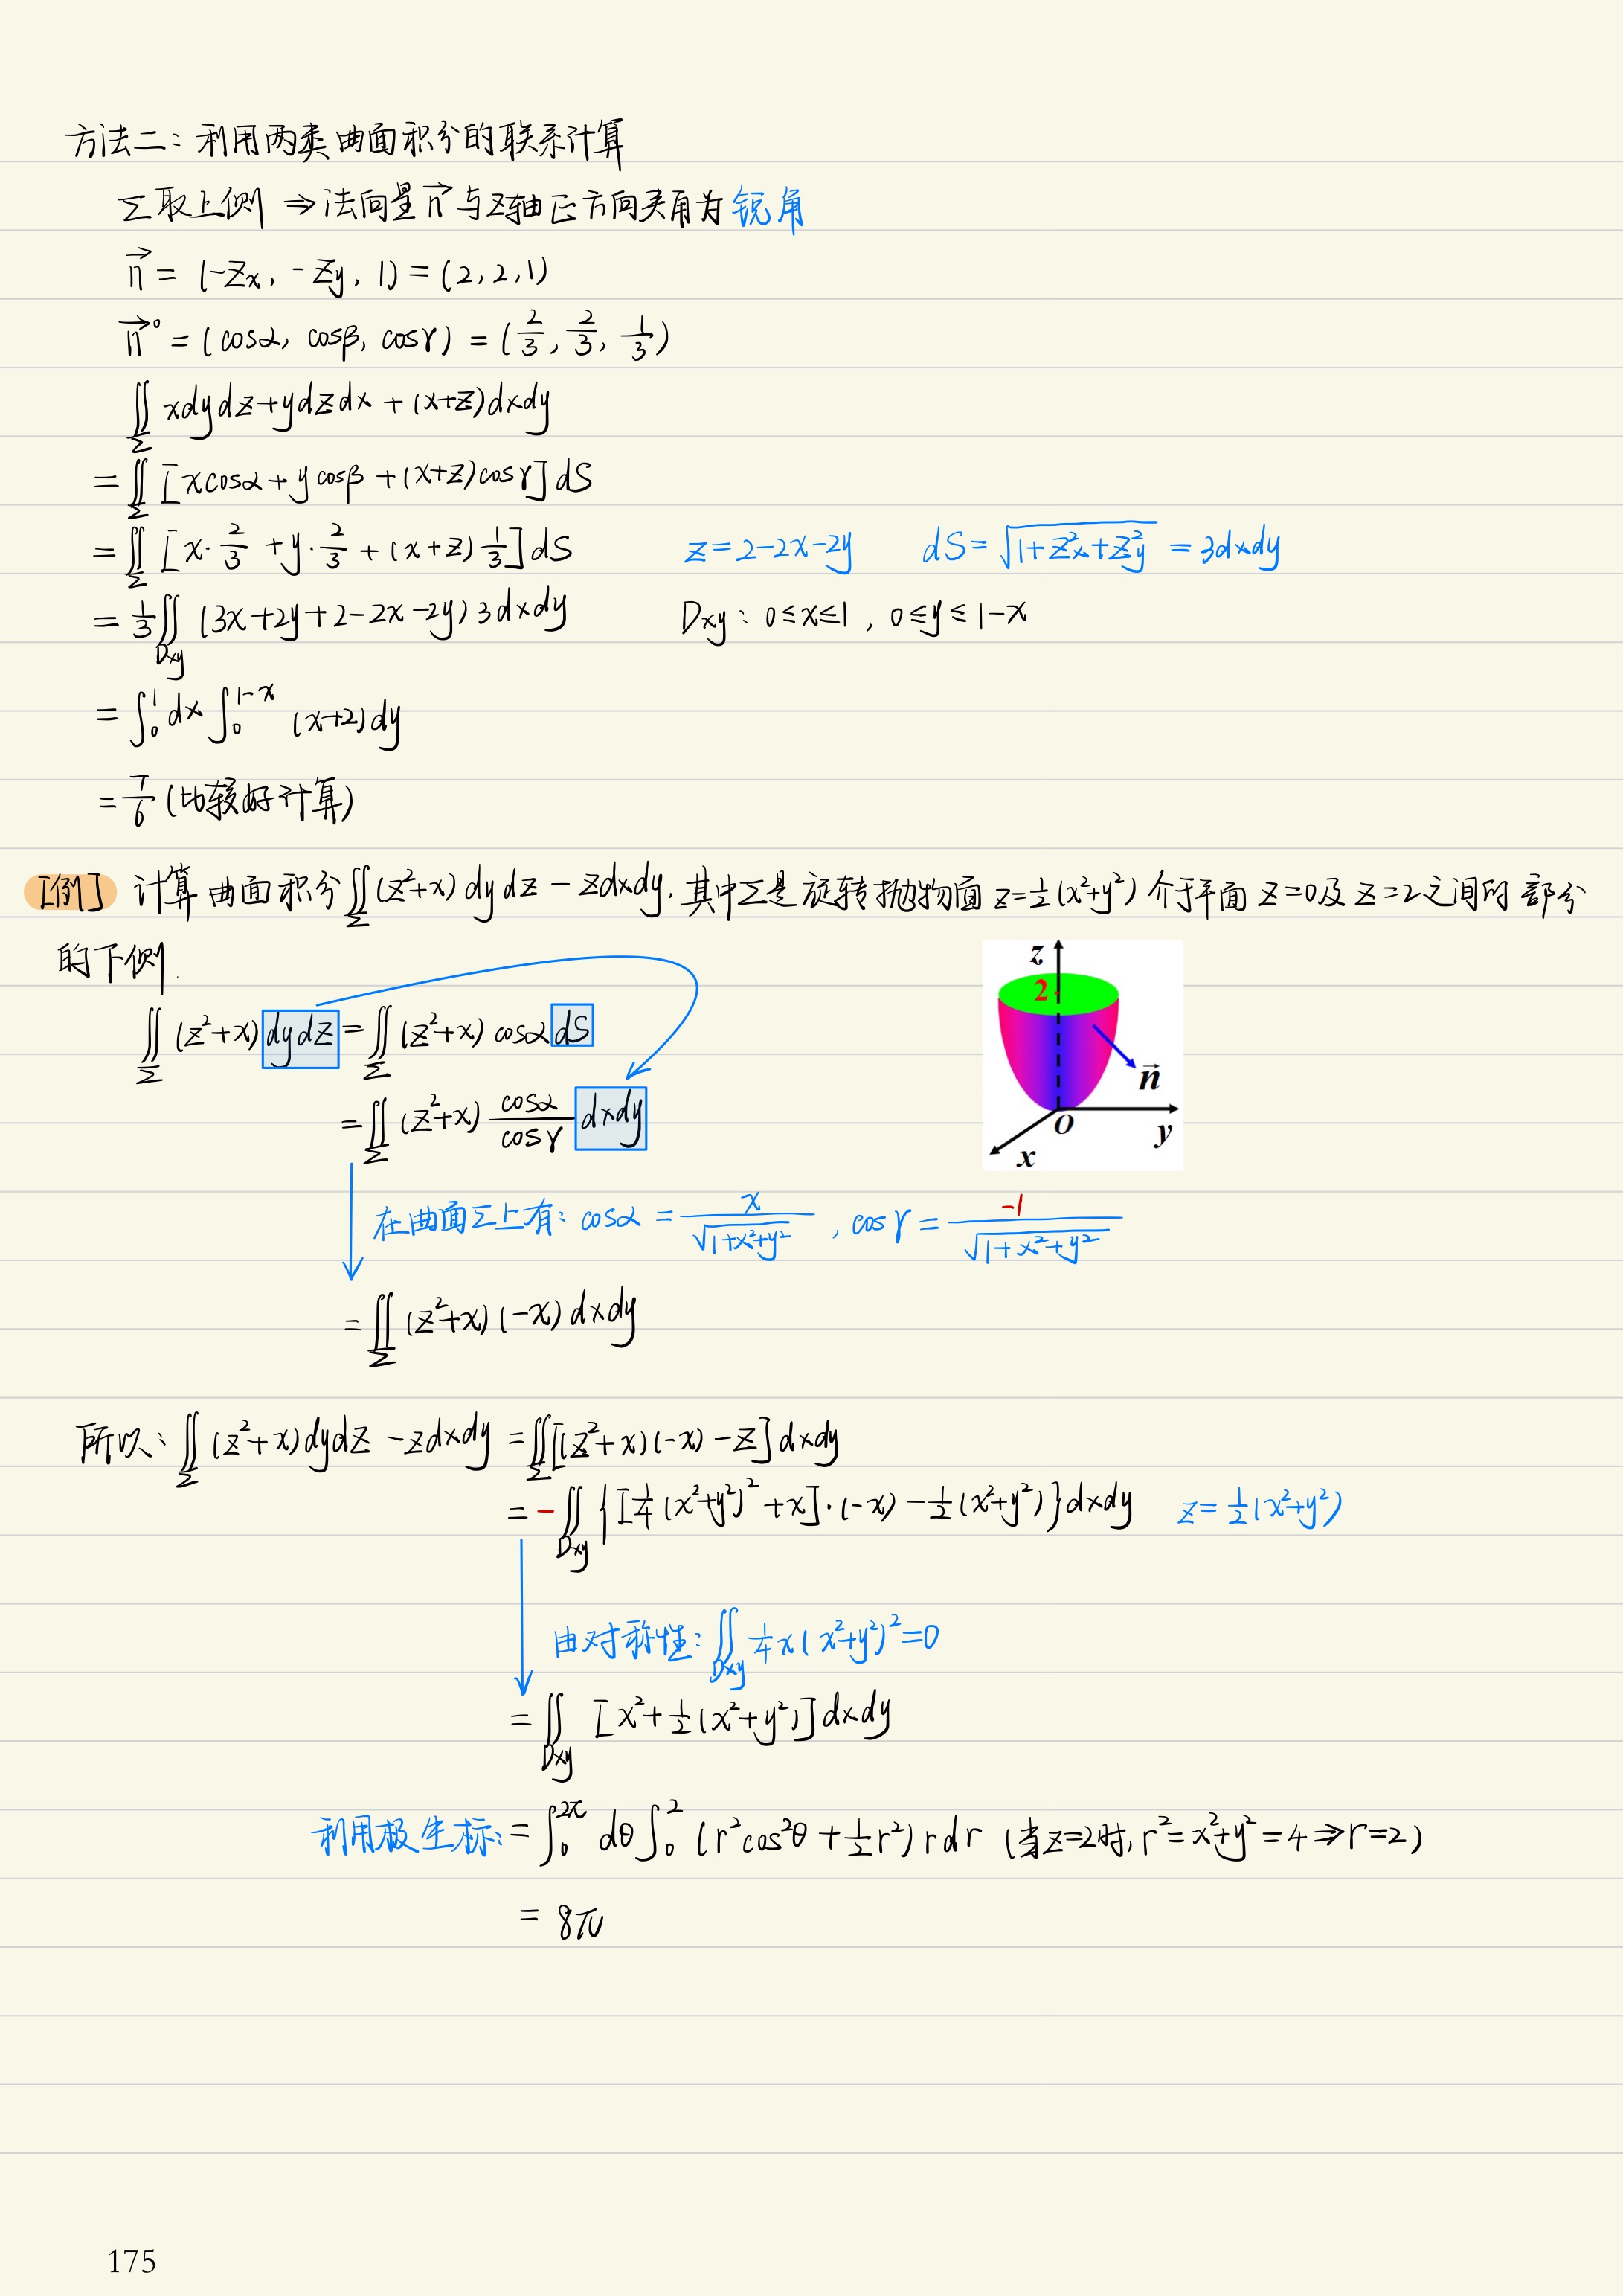 方法二：利用两类曲面积分的联系计算
Σ取上侧 ⇒ 法向量 n⃗ 与z轴正方向夹角为锐角
n⃗ = (-Zx, -Zy, 1) = (2, 2, 1)
n⃗° = (cosα, cosβ, cosγ) = (2/3, 2/3, 1/3)
∬_Σ xdydz+ydzdx+(x+z)dxdy
= ∬_Σ [xcosα+ycosβ+(x+z)cosγ]dS
= ∬_Σ [x·2/3 + y·2/3 + (x+z)1/3]dS z=2-2x-2y dS=√(1+Z²x+Z²y) = 3dxdy
= 1/3 ∬_Dxy (3x+2y+2-2x-2y)3dxdy Dxy：0≤x≤1, 0≤y≤1-x
= ∫₀¹dx∫₀^(1-x) (x+2)dy
= 7/6 (比较好计算)
[例] 计算曲面积分∬_Σ(z²+x)dydz - zdxdy, 其中Σ是旋转抛物面 z=½(x²+y²) 介于平面 z=0及 z=2之间的部分
的下侧.
∬_Σ (z²+x)dydz = ∬_Σ (z²+x)cosα dS
= ∬_Σ (z²+x) cosα/cosγ dxdy
z
2
n⃗
O
y
x
在曲面Σ上有：cosα = x/√(1+x²+y²), cosγ = -1/√(1+x²+y²)
= ∬_Σ (z²+x)(-x)dxdy
所以：∬_Σ (z²+x)dydz - zdxdy = ∬_Σ[(z²+x)(-x)-z]dxdy
= -∬_Dxy {[¼(x²+y²)²+x]·(-x)-½(x²+y²)}dxdy z=½(x²+y²)
由对称性：∬_Dxy ¼x(x²+y²)²=0
= ∬_Dxy [x²+½(x²+y²)]dxdy
利用极坐标：= ∫₀^2π dθ∫₀² (r²cos²θ+½r²)rdr (当z=2时, r²=x²+y²=4⇒r=2)
= 8π
175